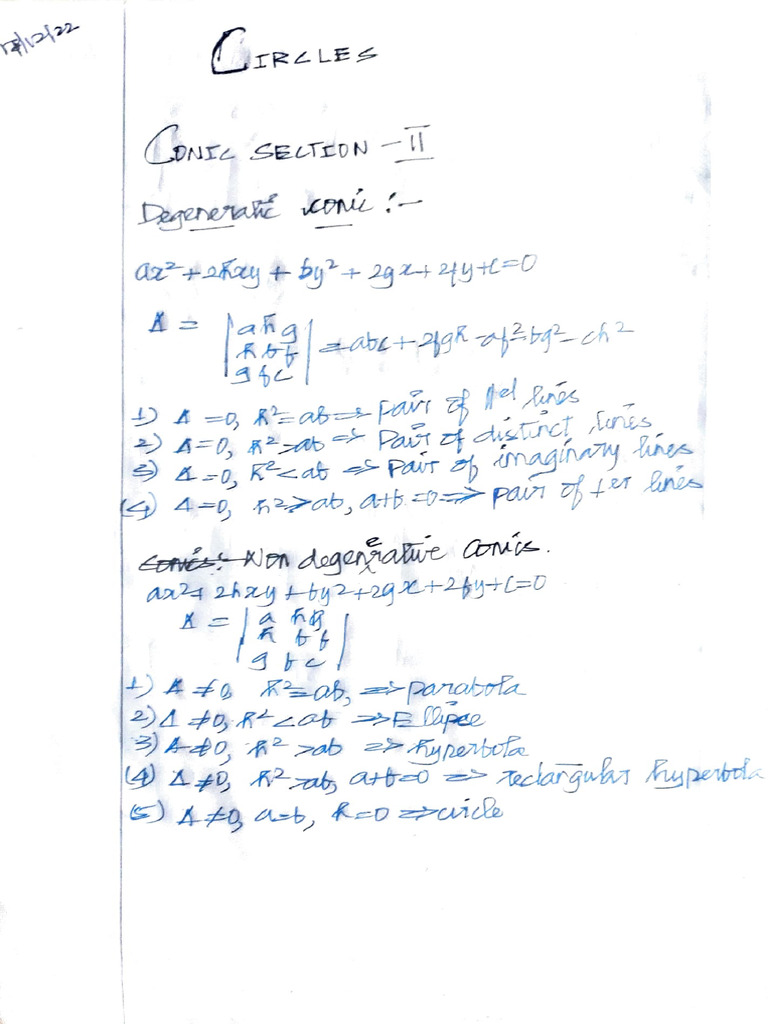 CIRCLES
CONIC SECTION - II
Degenerative conic :-
ax² + 2hxy + by² + 2gx + 2fy + c = 0
Δ = | a h g | = abc + 2fgh - af² - bg² - ch²
| h b f |
| g f c |
1) Δ = 0, h² = ab ⇒ Pair of ||el lines
2) Δ = 0, h² > ab ⇒ Pair of distinct lines
3) Δ = 0, h² < ab ⇒ Pair of imaginary lines
(4) Δ = 0, h² > ab, a+b = 0 ⇒ pair of ⊥er lines
Non degenerative conics.
ax² + 2hxy + by² + 2gx + 2fy + c = 0
Δ = | a h g |
| h b f |
| g f c |
1) Δ ≠ 0, h² = ab, ⇒ parabola
2) Δ ≠ 0, h² < ab ⇒ Ellipse
3) Δ ≠ 0, h² > ab ⇒ hyperbola
(4) Δ ≠ 0, h² > ab, a+b = 0 ⇒ rectangular hyperbola
(5) Δ ≠ 0, a = b, h = 0 ⇒ circle